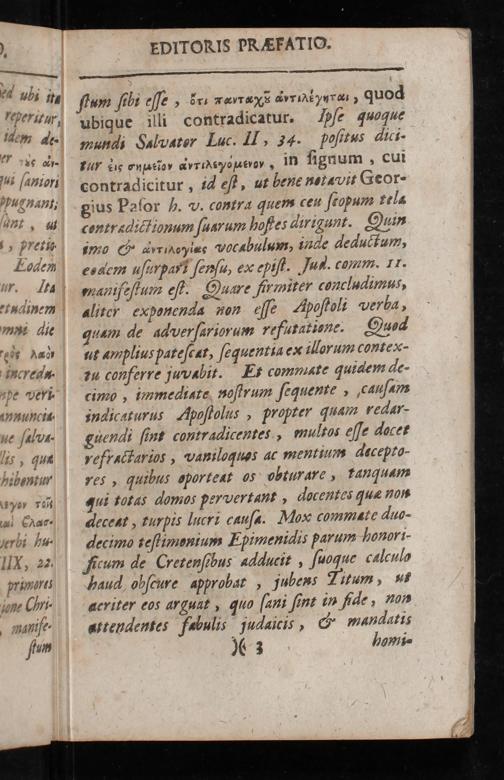 EDITORIS PRÆFATIO.
ſtum ſibi eſſe, ὅτι πανταχοῦ ἀντιλέγηται, quod
ubique illi contradicatur. Ipſe quoque
mundi Salvator Luc. II, 34. poſitus dici-
tur ἐις σημεῖον ἀντιλεγόμενον, in ſignum, cui
contradicitur, id eſt, ut bene notavit Geor-
gius Paſor h. v. contra quem ceu ſcopum tela
contradictionum ſuarum hoſtes dirigunt. Quin
imo & ἀντιλογίας vocabulum, inde deductum,
eodem uſurpari ſenſu, ex epiſt. Jud. comm. 11.
manifeſtum eſt. Quare firmiter concludimus,
aliter exponenda non eſſe Apoſtoli verba,
quam de adverſariorum refutatione. Quod
ut amplius pateſcat, ſequentia ex illorum contex-
tu conferre juvabit. Et commate quidem de-
cimo, immediate noſtrum ſequente, cauſam
indicaturus Apoſtolus, propter quam redar-
guendi ſint contradicentes, multos eſſe docet
refractarios, vaniloquos ac mentium decepto-
res, quibus oporteat os obturare, tanquam
qui totas domos pervertant, docentes quæ non
deceat, turpis lucri cauſa. Mox commate duo-
decimo teſtimonium Epimenidis parum honori-
ficum de Cretenſibus adducit, ſuoque calculo
haud obſcure approbat, jubens Titum, ut
acriter eos arguat, quo ſani ſint in fide, non
attendentes fabulis judaicis, & mandatis
)( 3 homi-
ſed ubi ita
reperitur,
idem de-
τȣ̀ς ἀν-
qui ſaniori
ppugnant;
ſunt, ut
, pretio
Eodem
ur. Ita
etudinem
omni die
λαὸν
increda-
mpe veri-
annuncia-
ue ſalva-
llis, qua
hibentur
λεγον τοῖς
καὶ ἔλασ-
verbi hu-
IIX, 22.
primores
gione Chri-
manife-
ſtum